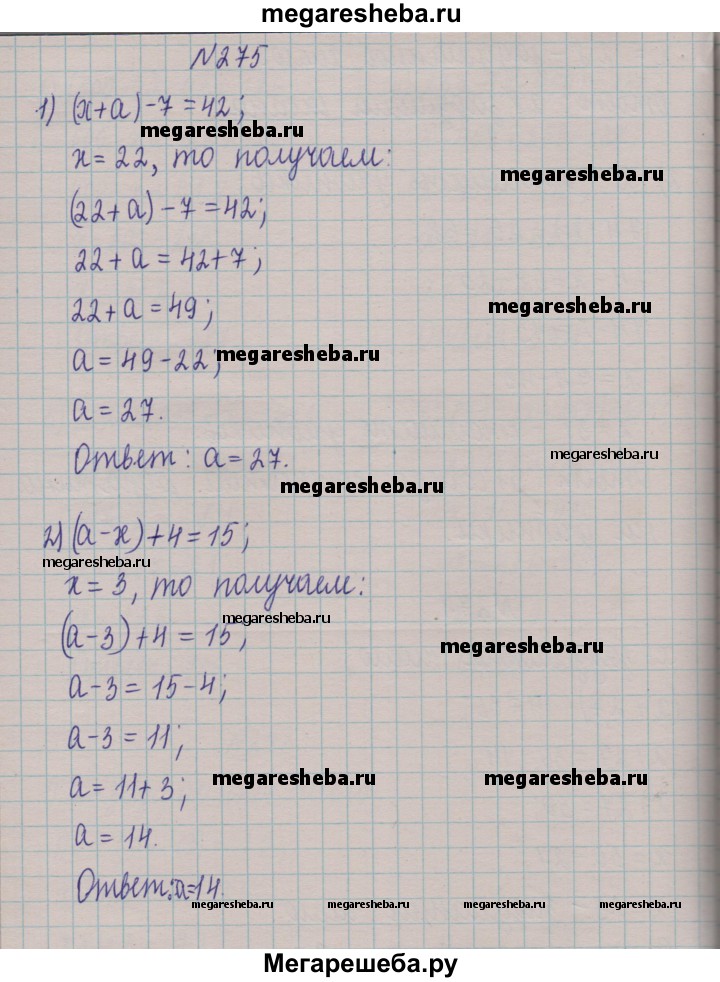 megaresheba.ru
№275
1) (x+a)-7=42;
megaresheba.ru
x=22, то получаем:
megaresheba.ru
(22+a)-7=42;
22+a=42+7;
22+a=49;
megaresheba.ru
a=49-22;
megaresheba.ru
a=27.
Ответ: a=27.
megaresheba.ru
megaresheba.ru
2) (a-x)+4=15;
megaresheba.ru
x=3, то получаем:
megaresheba.ru
(a-3)+4=15;
megaresheba.ru
a-3=15-4;
a-3=11;
a=11+3;
megaresheba.ru megaresheba.ru
a=14.
Ответ: a=14.
megaresheba.ru megaresheba.ru megaresheba.ru megaresheba.ru
Мегарешеба.ру